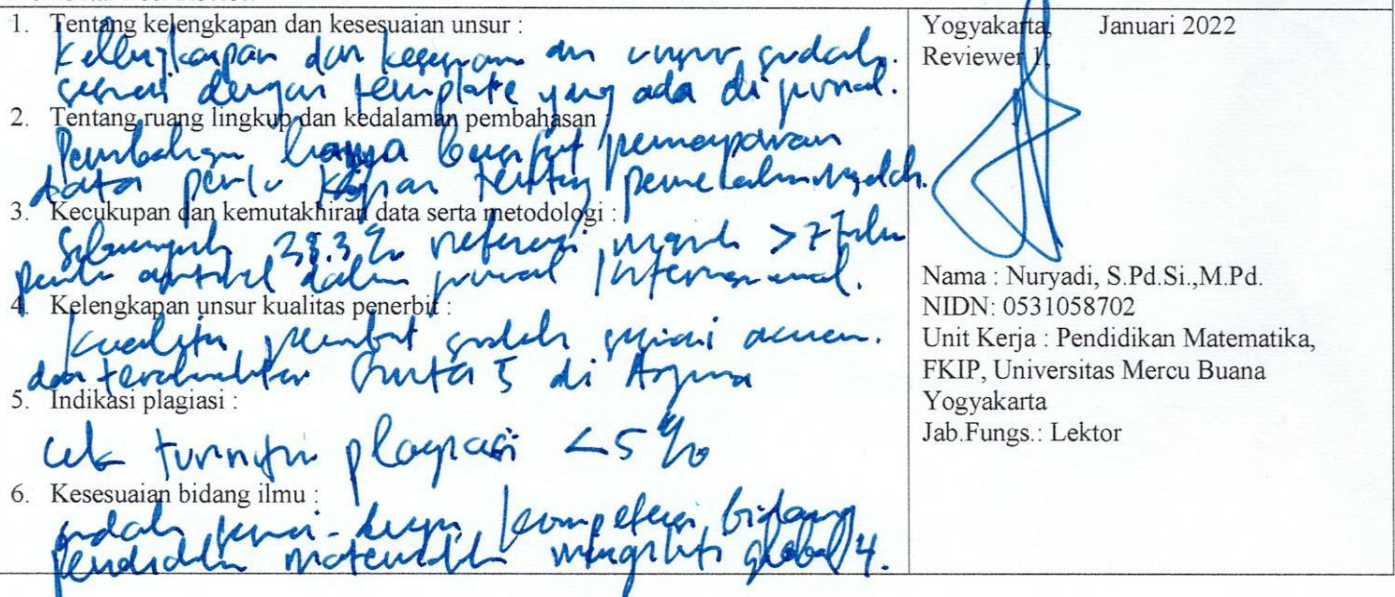 1. Tentang kelengkapan dan kesesuaian unsur :
Kelengkapan dan kesesuaian dan unsur sudah
sesuai dengan template yang ada di jurnal.
2. Tentang ruang lingkup dan kedalaman pembahasan
Pembahasan hanya pemaparan
data perlu kajian tentang
3. Kecukupan dan kemutakhiran data serta metodologi :
referensi masih >7
artikel dalam jurnal Internasional.
4. Kelengkapan unsur kualitas penerbit :
Kualitas penerbit sudah sesuai acuan.
dan terakreditasi Sinta 5 di Arjuna
5. Indikasi plagiasi :
cek turnitin plagiasi <5%
6. Kesesuaian bidang ilmu :
sudah kompetensi bidang
pendidikan matematika
Yogyakarta, Januari 2022
Reviewer 1,
Nama : Nuryadi, S.Pd.Si.,M.Pd.
NIDN: 0531058702
Unit Kerja : Pendidikan Matematika,
FKIP, Universitas Mercu Buana
Yogyakarta
Jab.Fungs.: Lektor